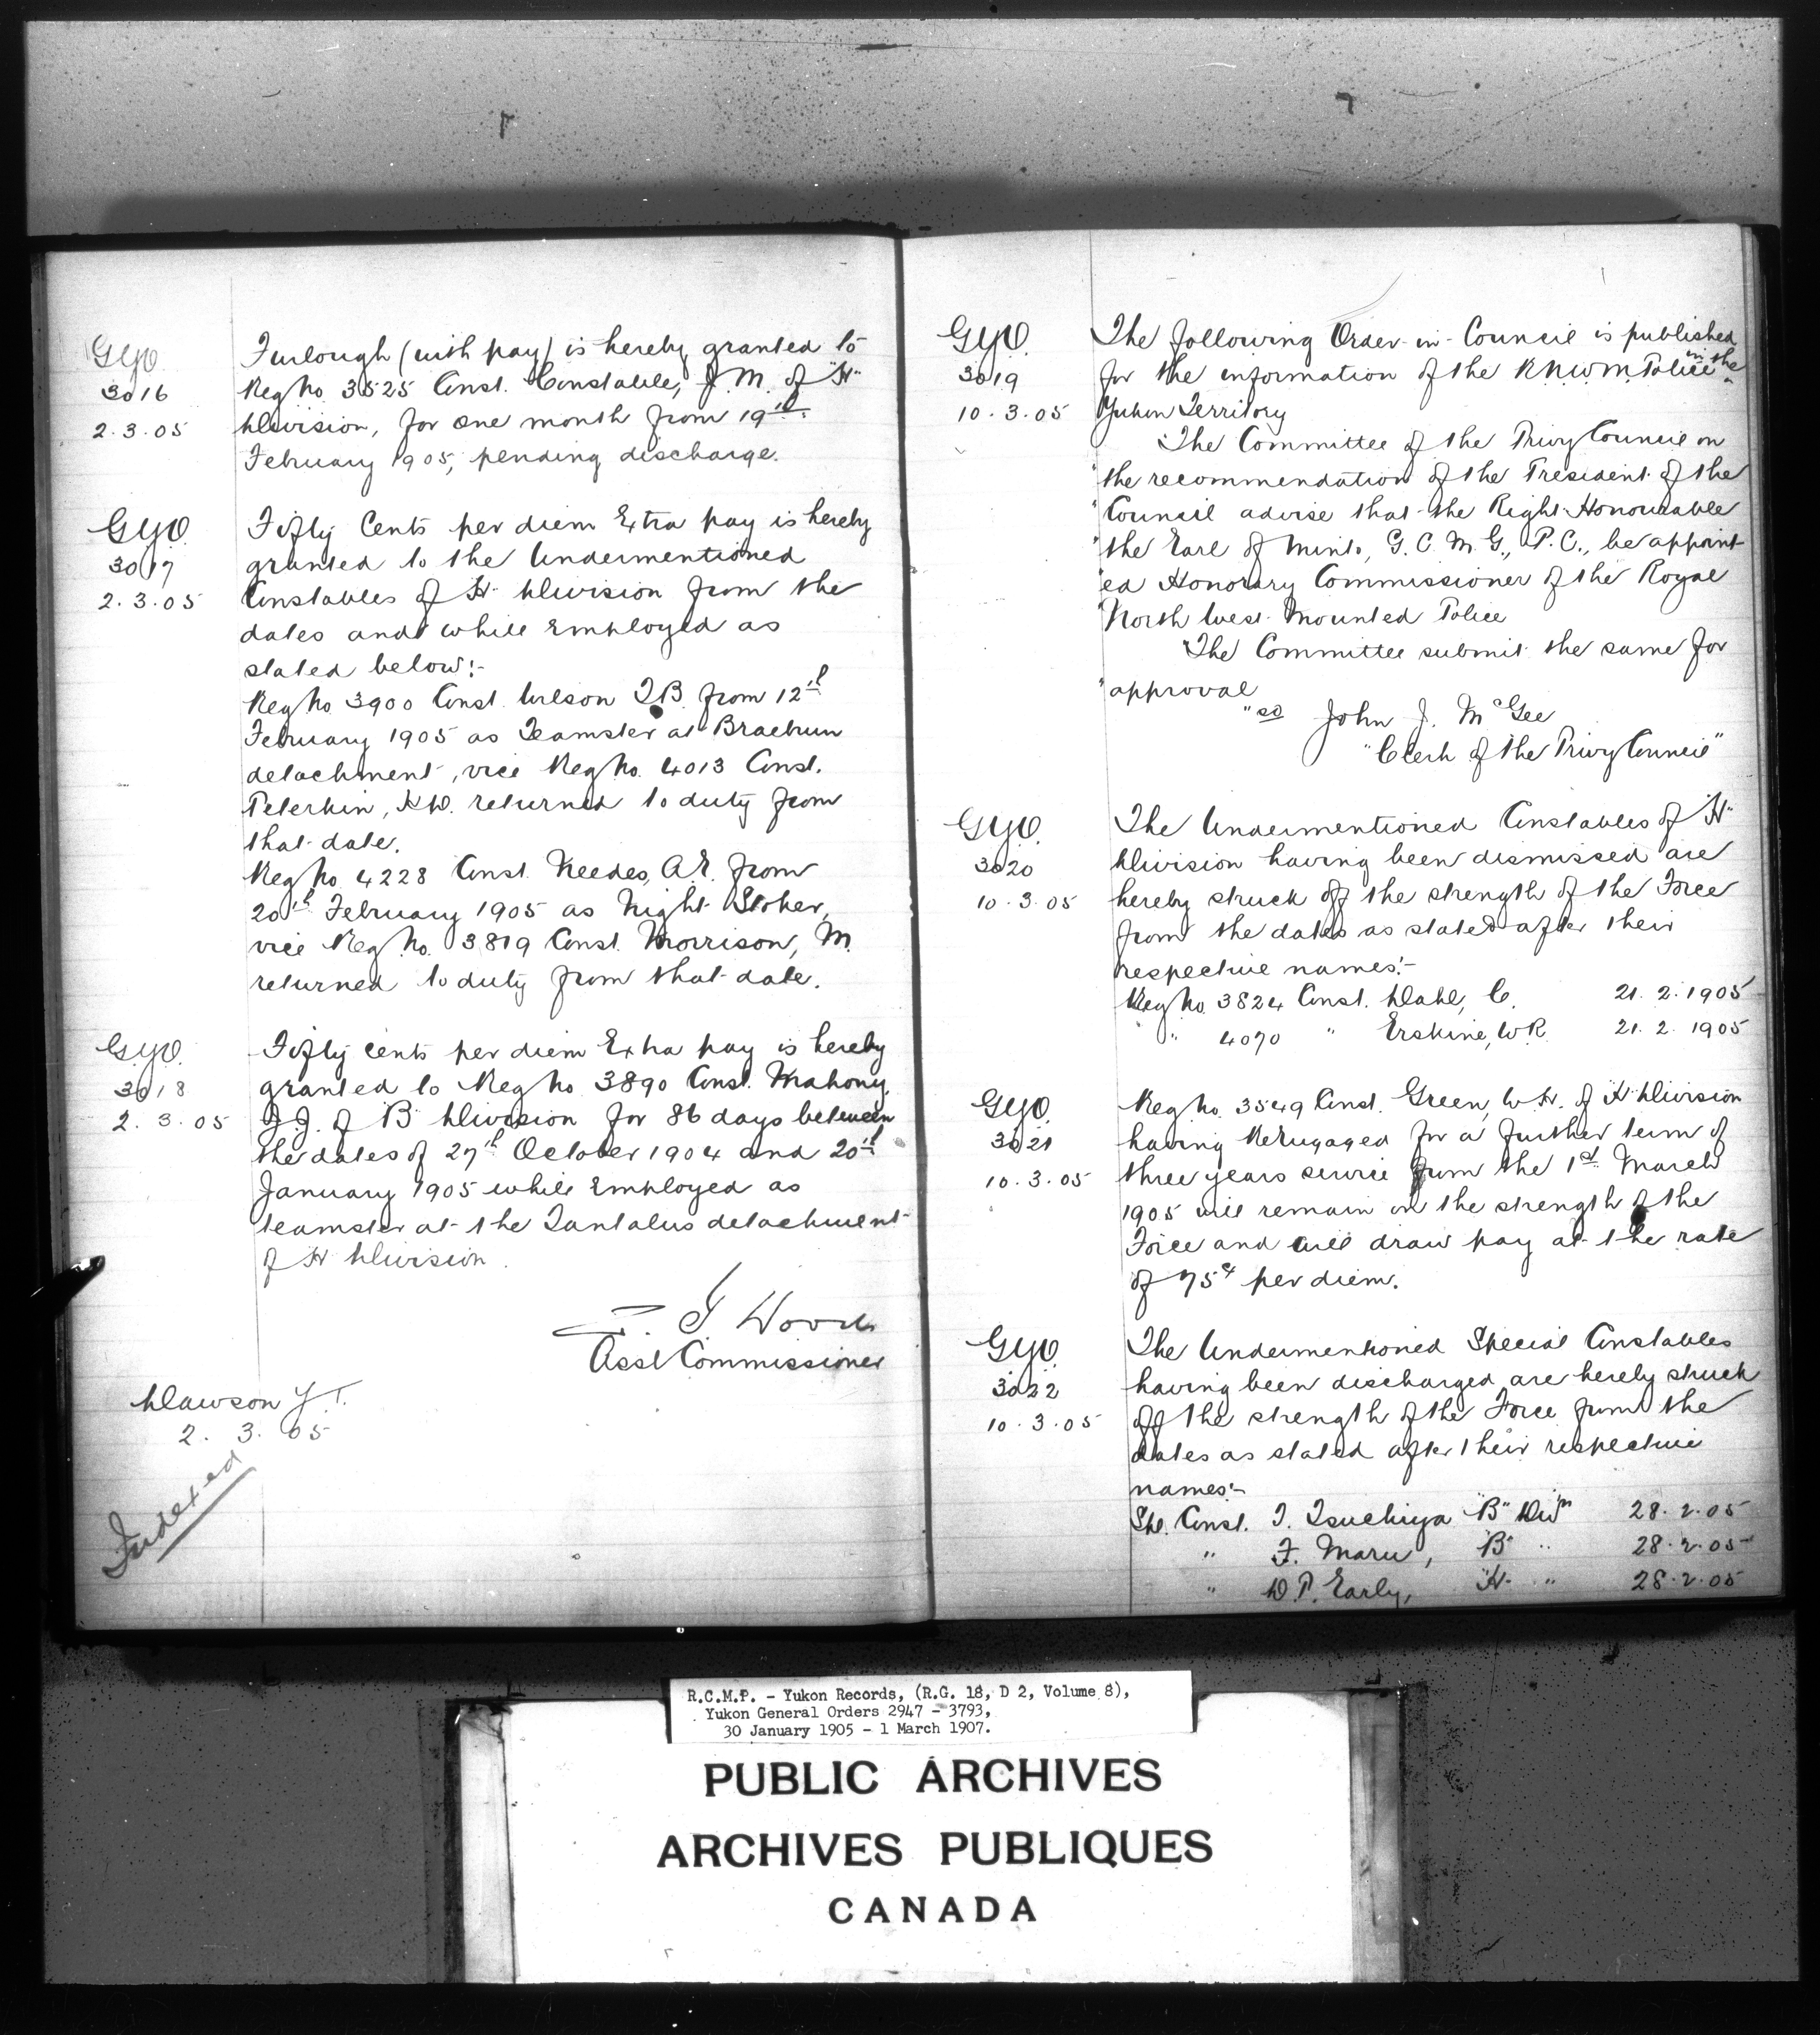 GYO
3016
2.3.05
Furlough (with pay) is hereby granted to
Reg No. 3525 Const. Constable, J.M. of "H"
Division, for one month from 19th
February 1905, pending discharge.
GYO
3017
2.3.05
Fifty Cents per diem Extra pay is hereby
granted to the Undermentioned
Constables of H Division from the
dates and while Employed as
stated below:-
Reg No 3900 Const. Wilson T.B. from 12th
February 1905 as Teamster at Braeburn
detachment, vice Reg No. 4013 Const.
Peterkin, K.W. returned to duty from
that date.
Reg No 4228 Const. Needes, A.E. from
20th February 1905 as Night Stoker,
vice Reg No. 3819 Const. Morrison, M.
returned to duty from that date.
GYO.
3018
2.3.05
Fifty cents per diem Extra pay is hereby
granted to Reg No 3890 Const. Mahony,
J.J. of B Division for 86 days between
the dates of 27th October 1904 and 20th
January 1905 while Employed as
teamster at the Tantalus detachment
of H Division.
Z. T. Wood
Asst Commissioner
Dawson Y.T.
2. 3. 05
Indexed
GYO.
3019
10.3.05
The following Order-in-Council is published
for the information of the R.N.W.M. Police in the
Yukon Territory
"The Committee of the Privy Council on
"the recommendation of the President of the
"Council advise that the Right Honourable
"the Earl of Minto, G.C.M.G., P.C., be appoint-
"ed Honorary Commissioner of the Royal
"North West Mounted Police
"The Committee submit the same for
"approval
"sd John J. McGee
"Clerk of the Privy Council"
GYO.
3020
10.3.05
The Undermentioned Constables of "H"
Division having been dismissed are
hereby struck off the strength of the Force
from the dates as stated after their
respective names:-
Reg No. 3824 Const. Dahl, C. 21.2.1905
" 4070 " Erskine, W.R. 21.2.1905
GYO.
3021
10.3.05
Reg No. 3549 Const. Green, W.H. of H Division
having Reengaged for a further term of
three years service from the 1st March
1905 will remain on the strength of the
Force and will draw pay at the rate
of 75¢ per diem.
GYO.
3022
10.3.05
The Undermentioned Special Constables
having been discharged are hereby struck
off the strength of the Force from the
dates as stated after their respective
names:-
Spl. Const. T. Tsuchiya "B" Divn 28.2.05
" F. Maru, "B" " 28.2.05
" D.P. Early, "H" " 28.2.05
R.C.M.P. - Yukon Records, (R.G. 18, D 2, Volume 8),
Yukon General Orders 2947 - 3793,
30 January 1905 - 1 March 1907.
PUBLIC ARCHIVES
ARCHIVES PUBLIQUES
CANADA